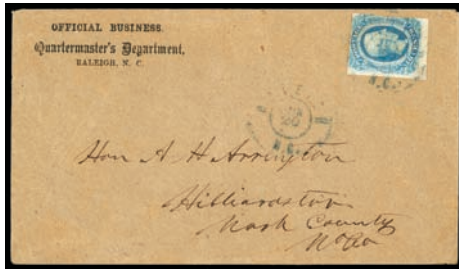 OFFICIAL BUSINESS.
Quartermaster's Department,
RALEIGH, N. C.
N.C.
N.C.
Hon A H Arrington
Hilliardston
Nash County
N Ca